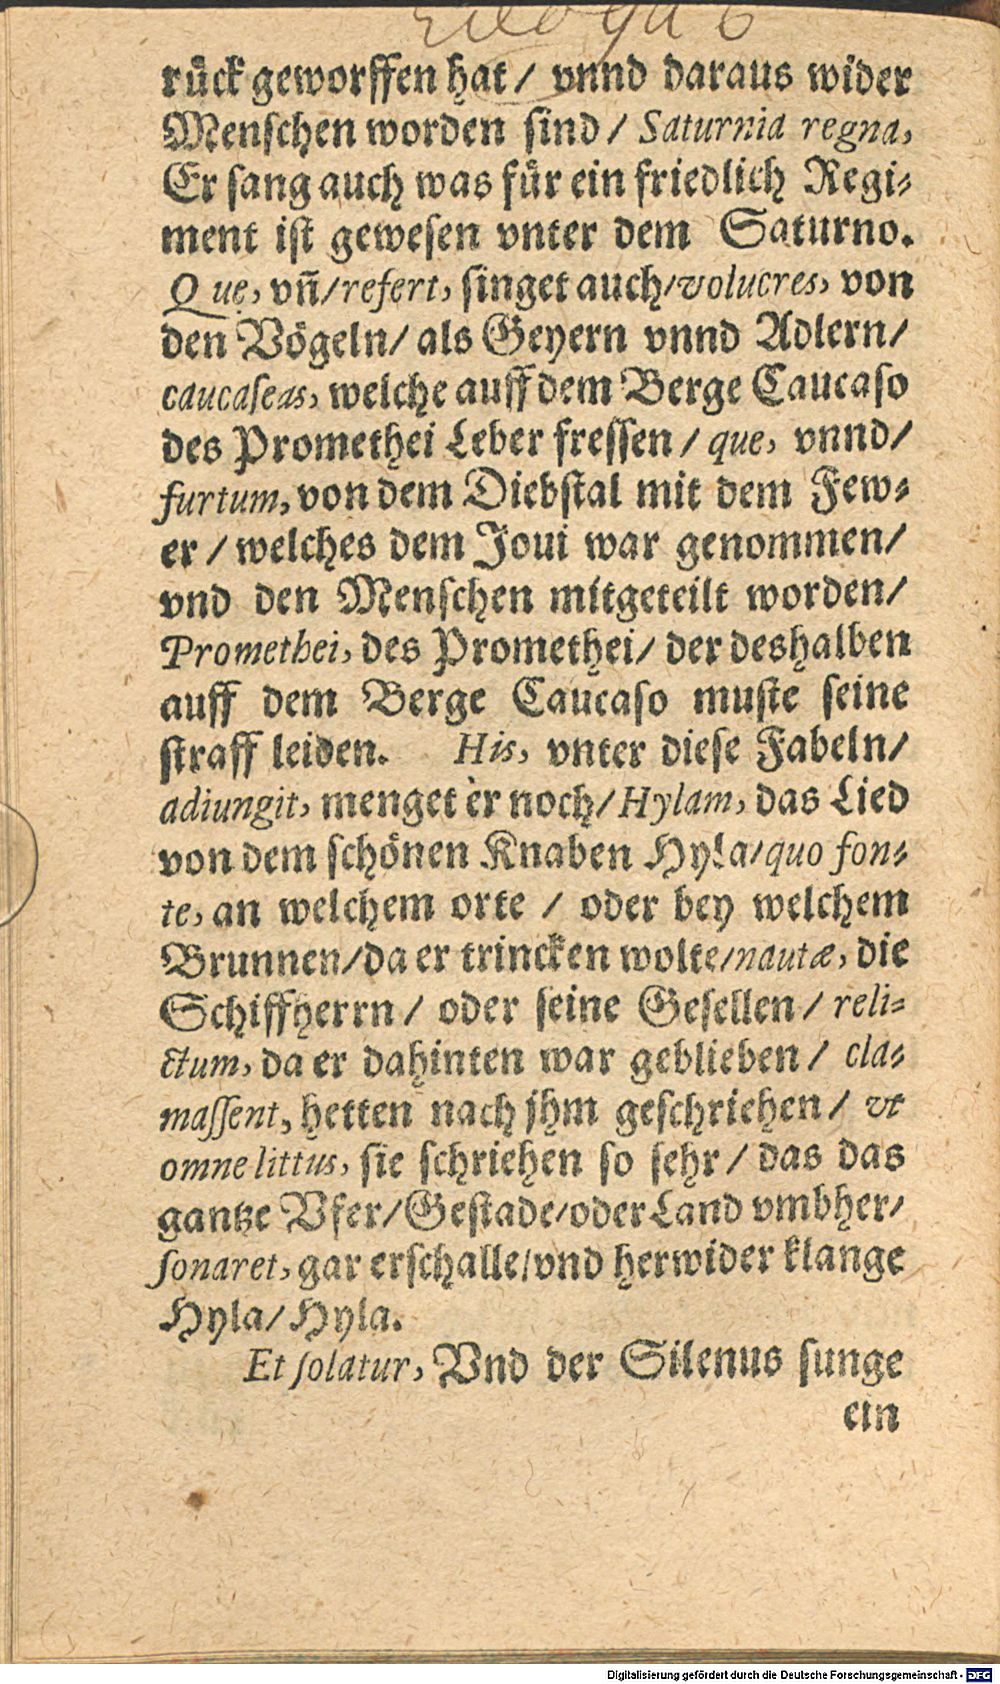 Ecloga 6
rück geworffen hat / vnnd daraus wider
Menschen worden sind / Saturnia regna,
Er sang auch was für ein friedlich Regi-
ment ist gewesen vnter dem Saturno.
Que, vñ/refert, singet auch/volucres, von
den Vögeln/ als Geyern vnnd Adlern/
caucaseas, welche auff dem Berge Caucaso
des Promethei Leber fressen / que, vnnd/
furtum, von dem Diebstal mit dem Few-
er / welches dem Joui war genommen/
vnd den Menschen mitgeteilt worden/
Promethei, des Promethei/ der deshalben
auff dem Berge Caucaso muste seine
straff leiden. His, vnter diese Fabeln/
adiungit, menget er noch/Hylam, das Lied
von dem schönen Knaben Hyla/quo fon-
te, an welchem orte / oder bey welchem
Brunnen/da er trincken wolte/nautæ, die
Schiffherrn / oder seine Gesellen / reli-
ctum, da er dahinten war geblieben / cla-
massent, hetten nach jhm geschriehen / vt
omne littus, sie schriehen so sehr / das das
gantze Vfer/Gestade/oder Land vmbher/
sonaret, gar erschalle/vnd herwider klange
Hyla/ Hyla.
Et solatur, Vnd der Silenus sunge
ein
Digitalisierung gefördert durch die Deutsche Forschungsgemeinschaft - DFG